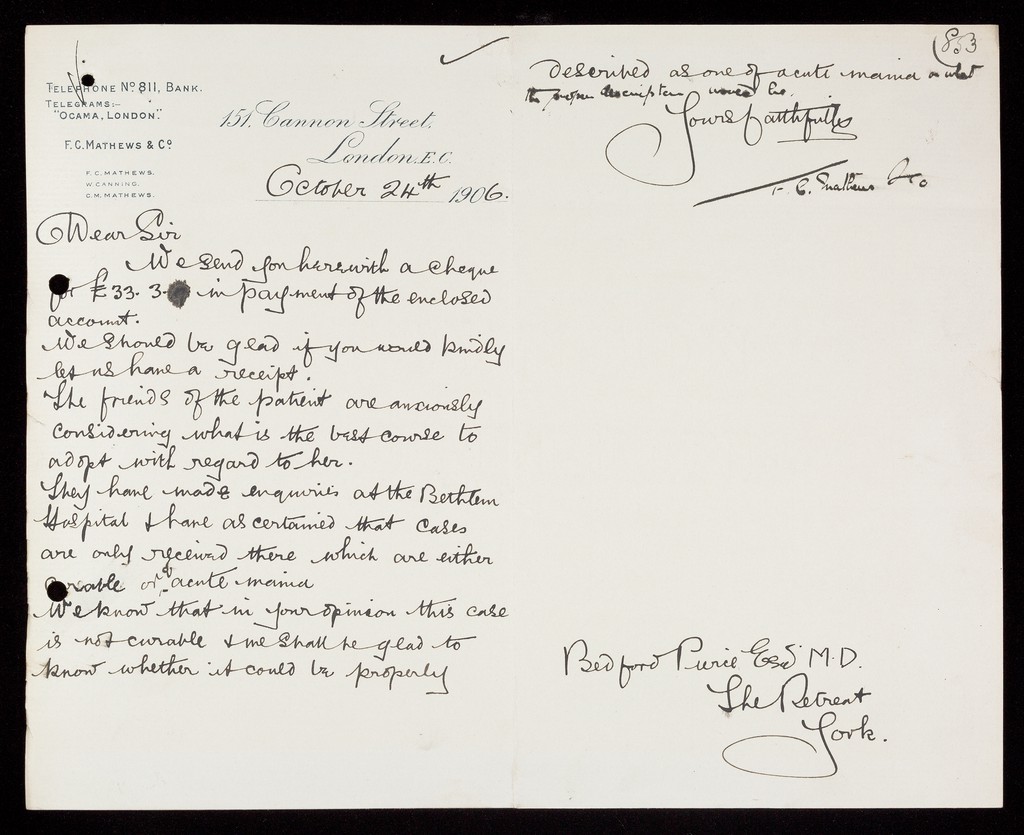 TELEPHONE Nº 811, BANK.
TELEGRAMS:-
"OCAMA, LONDON".
F.C. MATHEWS & Cº
F.C. MATHEWS.
W. CANNING.
C.M. MATHEWS.
151, Cannon Street,
London, E.C.
October 24th 1906.
Dear Sir
We send you herewith a cheque
for £33. 3. in payment of the enclosed
account.
We should be glad if you would kindly
let us have a receipt.
The friends of the patient are anxiously
considering what is the best course to
adopt with regard to her.
They have made enquiries at the Bethlem
Hospital & have ascertained that cases
are only received there which are either
curable or of acute mania
We know that in your opinion this case
is not curable & we shall be glad to
know whether it could be properly
853
described as one of acute mania or what
the proper description would be.
Yours faithfully
F. C. Mathews & Co
Bedford Pierce Esq M.D.
The Retreat
York.